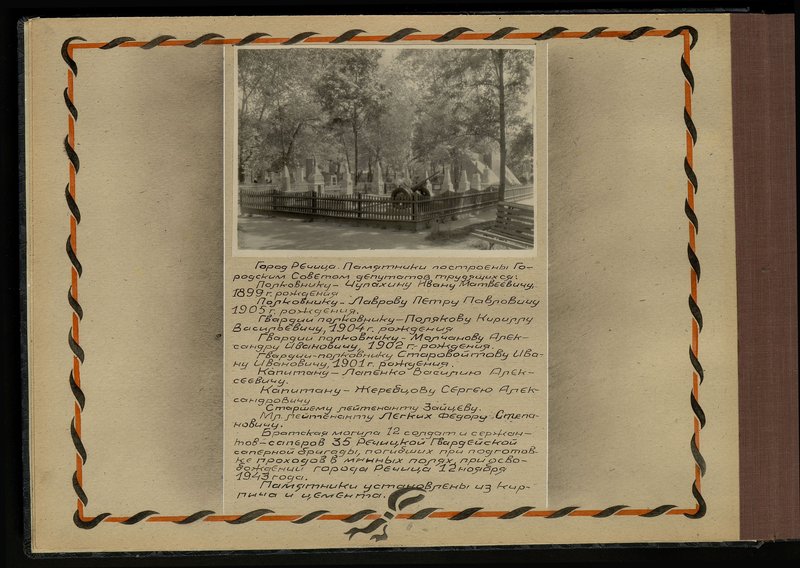 Город Речица. Памятники построены Го-
родским Советом депутатов трудящихся:
Полковнику – Чулахину Ивану Матвеевичу,
1899 г. рождения
Полковнику – Лаврову Петру Павловичу
1905 г. рождения.
Гвардии полковнику – Полякову Кириллу
Васильевичу, 1904 г. рождения
Гвардии полковнику – Молчанову Алек-
сандру Ивановичу, 1902 г. рождения.
Гвардии-полковнику Старовойтову Ива-
ну Ивановичу, 1901 г. рождения.
Капитану – Лапенко Василию Алек-
сеевичу.
Капитану – Жеребцову Сергею Алек-
сандровичу
Старшему лейтенанту Зайцеву.
Мл. лейтенанту Легких Федору Степа-
новичу.
Братская могила 12 солдат и сержан-
тов – саперов 35 Речицкой Гвардейской
саперной бригады, погибших при подготов-
ке проходов в минных полях, при осво-
бождении города Речица 12 ноября
1943 года.
Памятники установлены из кир-
пича и цемента.